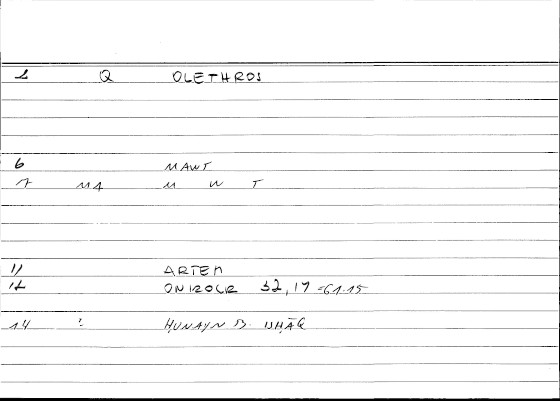 2 Q OLETHROS
6 MAWT
7 MA M W T
11 ARTEM
12 ONIROCR 52,17 =61.15
14 : HUNAYN B. ISHĀQ